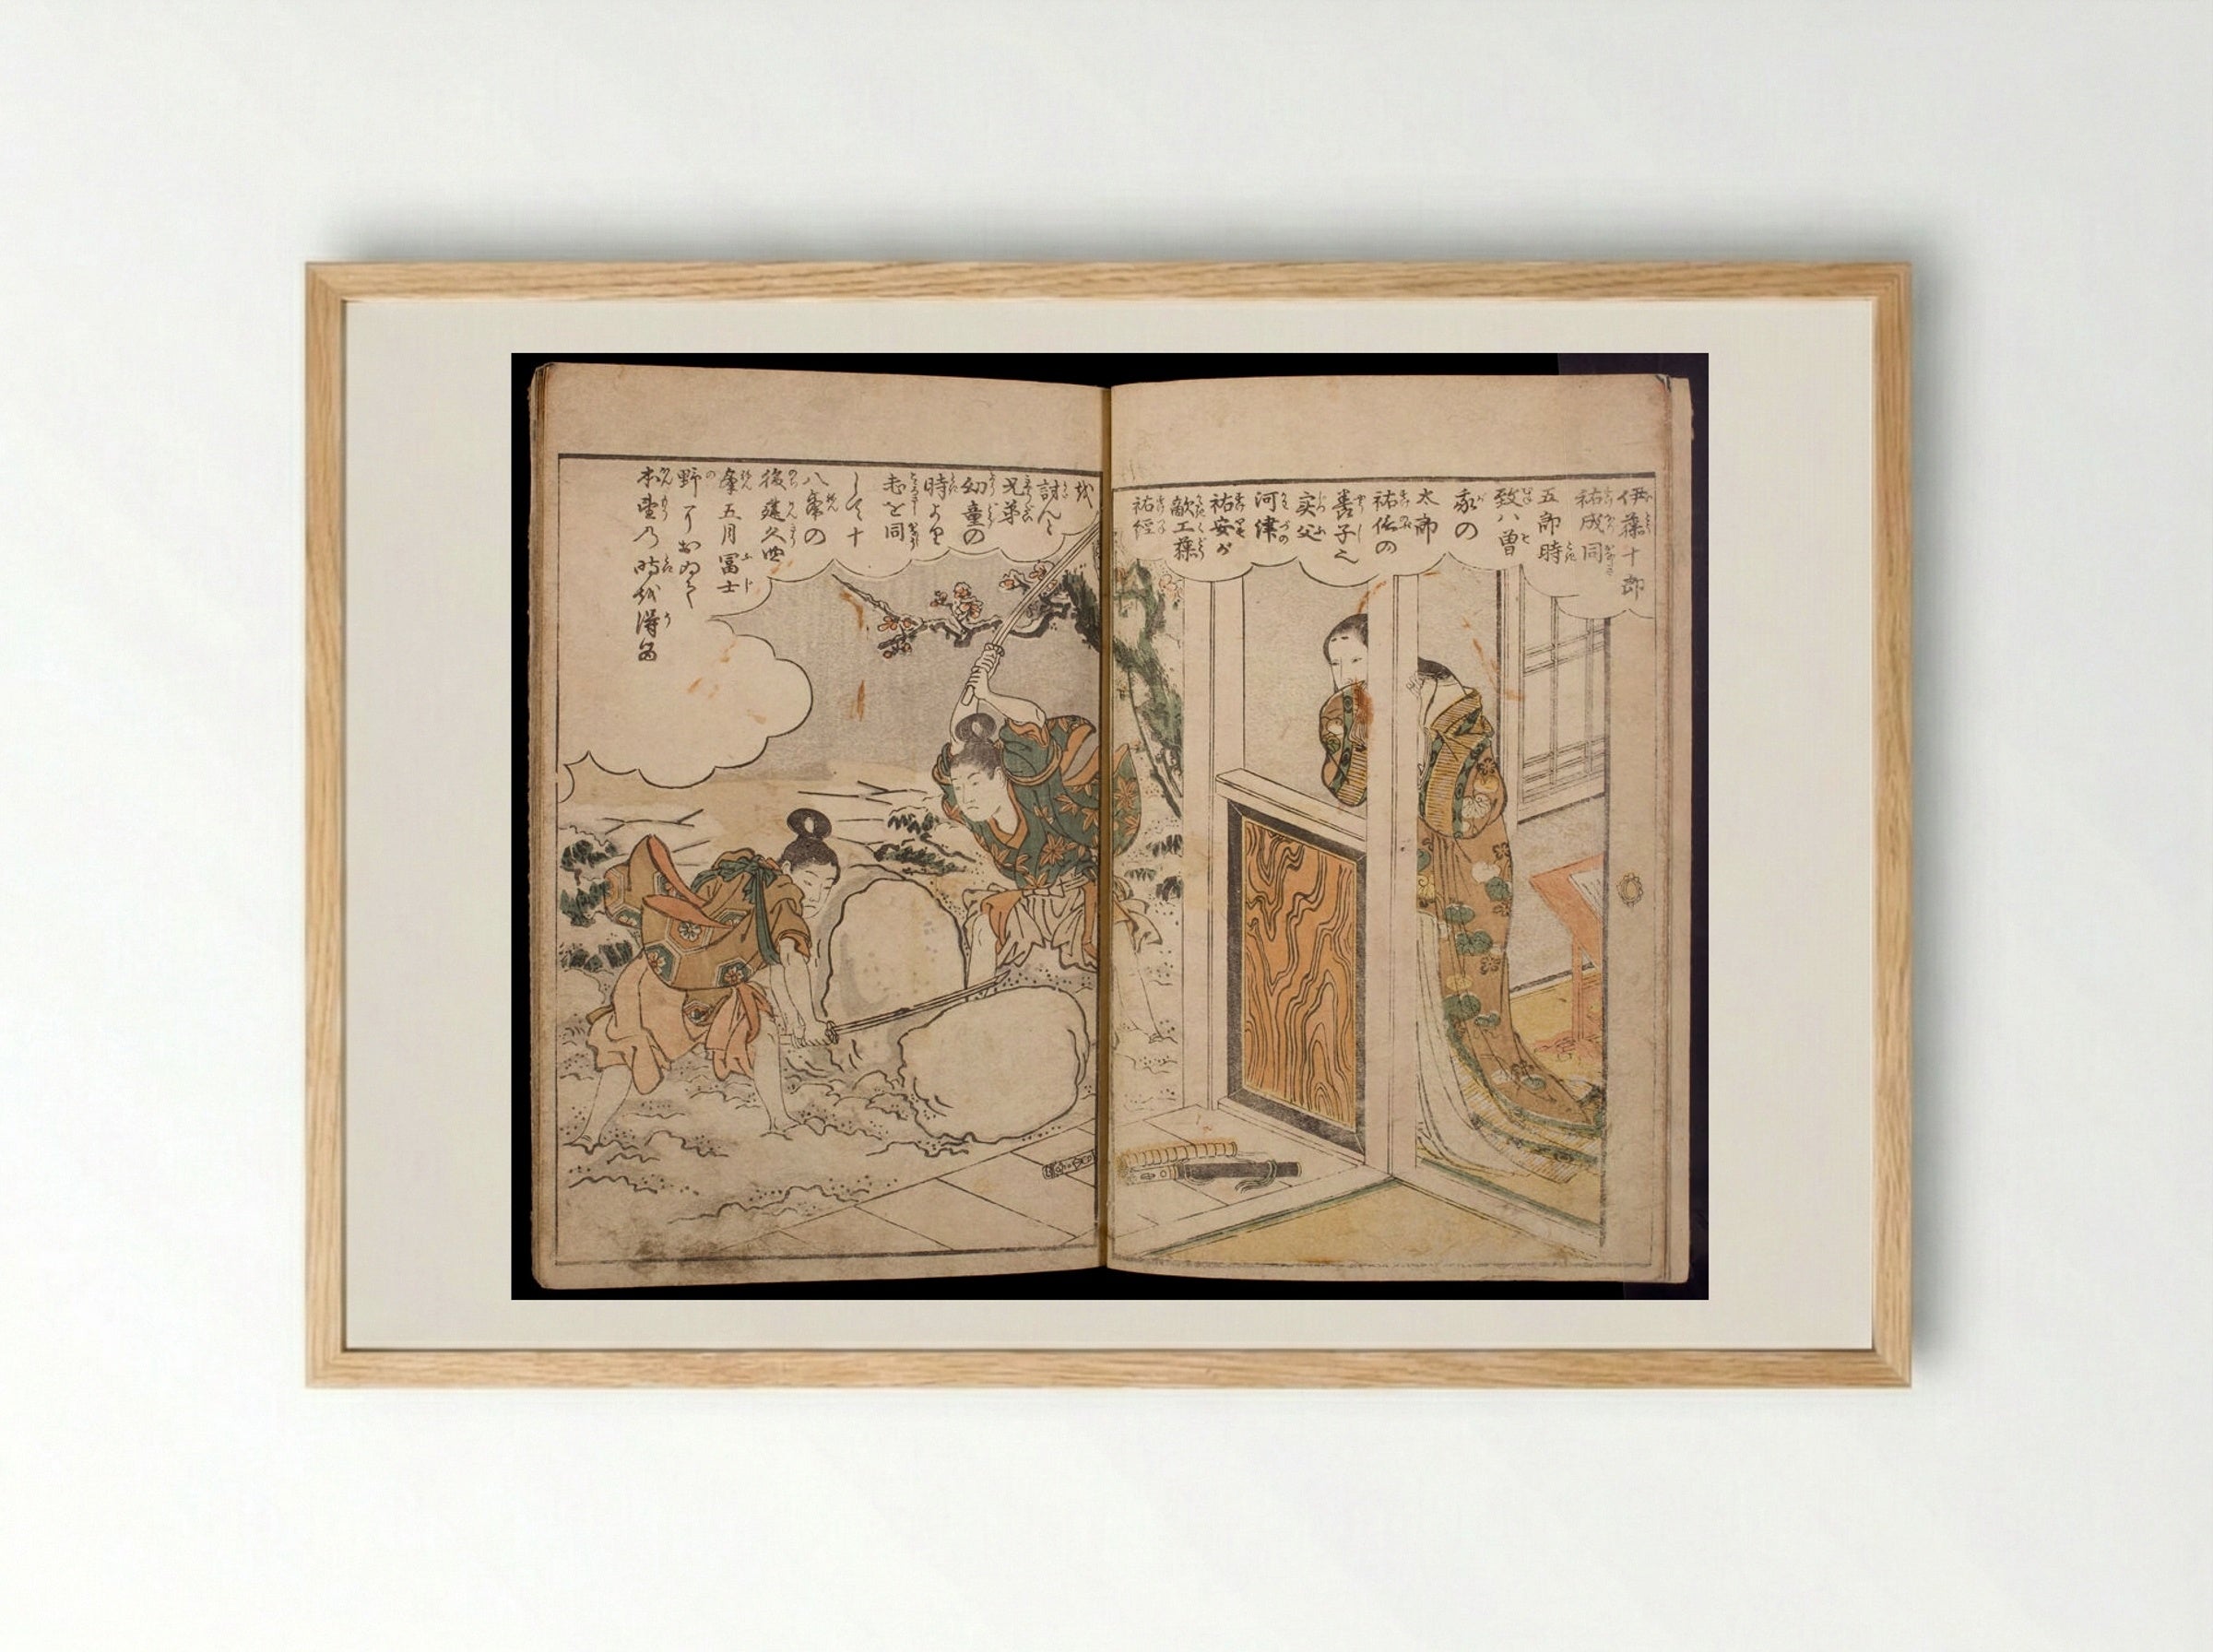 伊藤十郎
祐成同
五郎時
致ハ曽
我の
太郎
祐信の
養子之
实父
河津
祐安が
敵工藤
祐經
を
討んと
兄弟
幼童の
時より
志を同
して十
八年の
後建久四
年五月冨士
野においで
本望の時を得